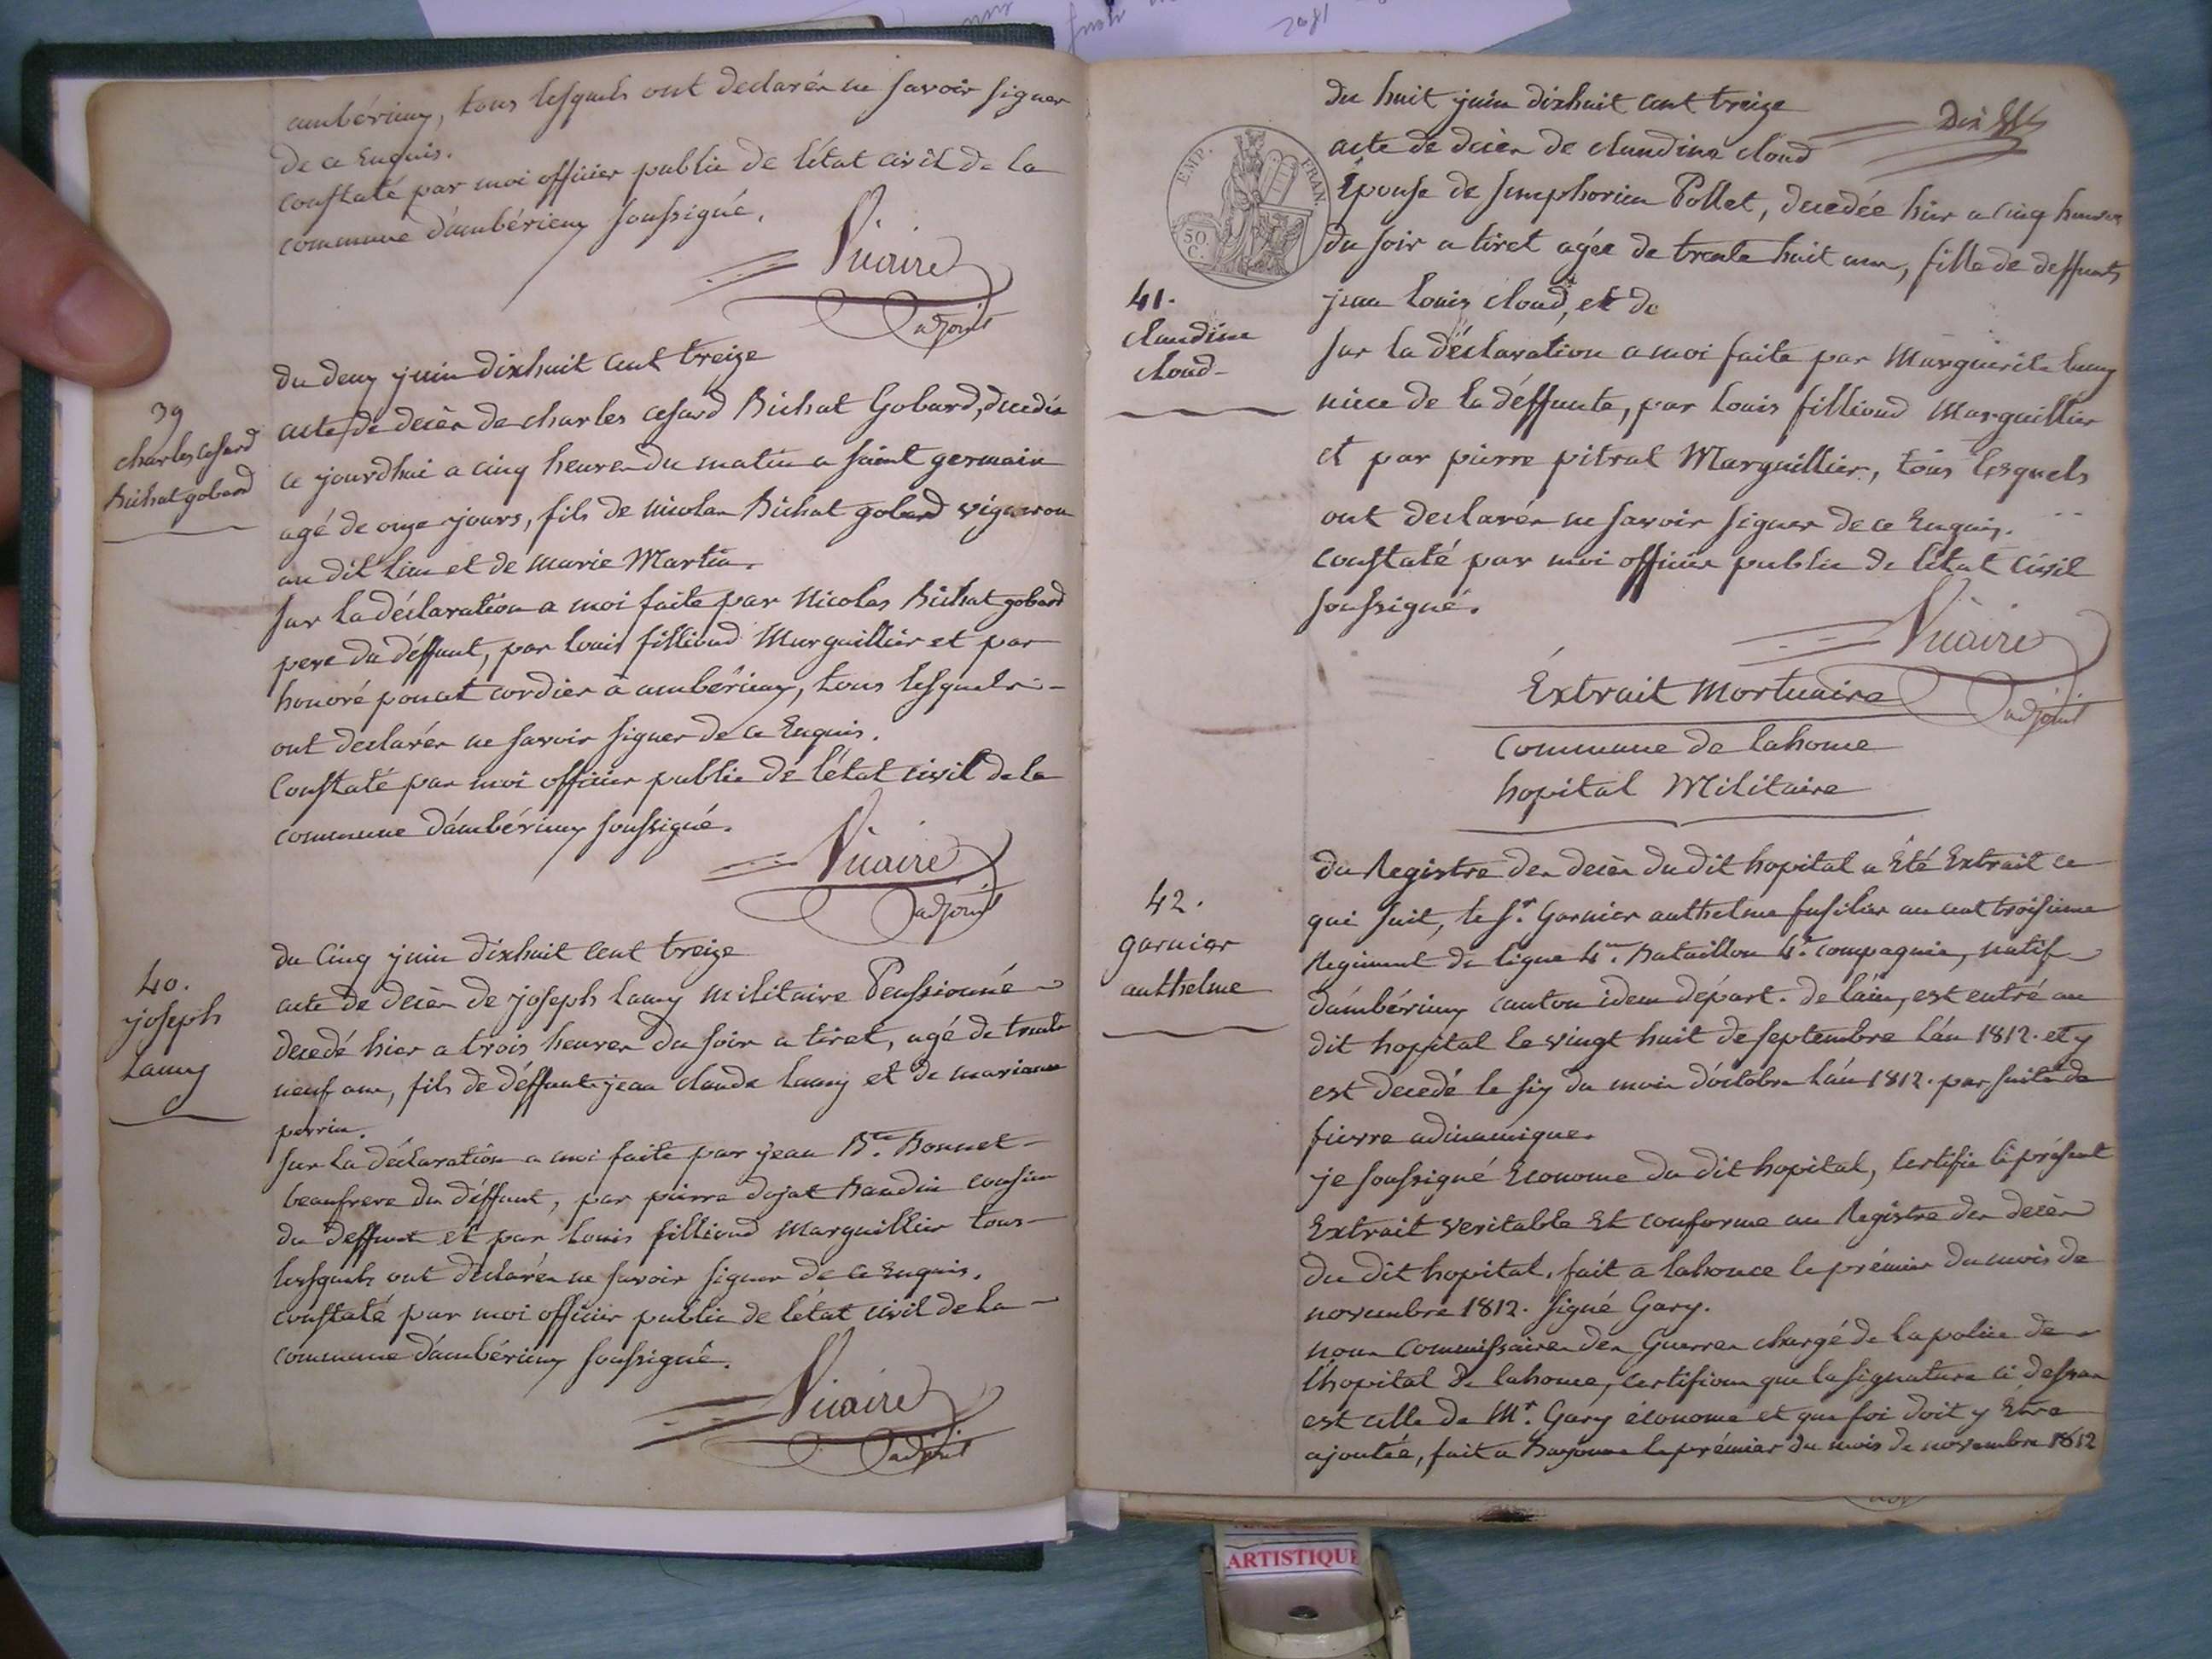 ambérieux, tous lesquels ont declarés ne savoir signer
de ce Enquis.
constaté par moi officier public de l'état civil de la
commune d'ambérieux soussigné.
Vicaire
adjoint
du deux juin dixhuit cent treize
39
charles cesard
Bichat gobard
acte de decès de charles cesard Bichat Gobard, decedé
ce jourdhui a cinq heures du matin a saint germain
agé de onze jours, fils de nicolas Bichat gobard vigneron
au dit lieu et de marie Martin.
sur la déclaration a moi faite par Nicolas Bichat gobard
pere du déffunt, par louis filliond Marguillier et par
honoré poncet cordier a ambérieux, tous lesquels
ont declarés ne savoir signer de ce Enquis.
Constaté par moi officier public de l'état civil de la
commune d'ambérieux soussigné.
Vicaire
adjoint
du Cinq juin dixhuit cent treize
40.
joseph
Lamy
acte de decès de joseph Lamy militaire Penssionné
decedé hier a trois heures du soir a tiret, agé de trente
neuf ans, fils de déffunts jean claude Lamy et de marianne
perrin.
sur la déclaration a moi faite par jean Bte. Bonnet
beaufrere du déffunt, par pierre dojat Baudin cousin
du deffunt et par Louis filliond Marguillier tous
lesquels ont déclarés ne savoir signer de ce Enquis.
constaté par moi officier public de l'état civil de la
commune d'ambérieux soussigné.
Vicaire
adjoint
du huit juin dixhuit cent treize
EMP. FRAN.
50.
C.
acte de decès de claudine cloud
Épouse de simphorien Pollet, decedée hier a cinq heures
du soir a tiret agée de trente huit ans, fille de deffunts
41.
claudine
cloud
jean louis cloud, et de
sur la déclaration a moi faite par Marguerite
niece de la déffunte, par Louis filliond Marguillier
et par pierre pitrat Marguillier, tous lesquels
ont declarés ne savoir signer de ce Enquis.
constaté par moi officier public de l'état civil
soussigné.
Vicaire
adjoint
Éxtrait Mortuaire
commune de lahonce
hopital Militaire
du Registre des decès du dit hopital a Été Extrait ce
42.
garnier
anthelme
qui suit, le Sr. Garnier anthelme fusilier au cent troisieme
Regiment de ligne 4me. Bataillon 4e. compagnie, natif
d'ambérieux canton idem départ. de l'ain, est entré au
dit hopital le vingt huit de septembre l'an 1812. et y
est decedé le six du mois d'octobre l'an 1812. par suite de
fievre adinamique.
je soussigné Econome du dit hopital, certifie le présent
Extrait veritable Et conforme au Registre des decès
du dit hopital. fait a lahonce le prémier du mois de
novembre 1812. signé Gary.
nous commissaires des Guerres chargé de la police de
l'hopital de lahonce, certifions que la signature ci dessus
est celle de Mr. Gary économe et que foi doit y Etre
ajoutée, fait a Bayonne le prémier du mois de novembre 1812
ARTISTIQUE